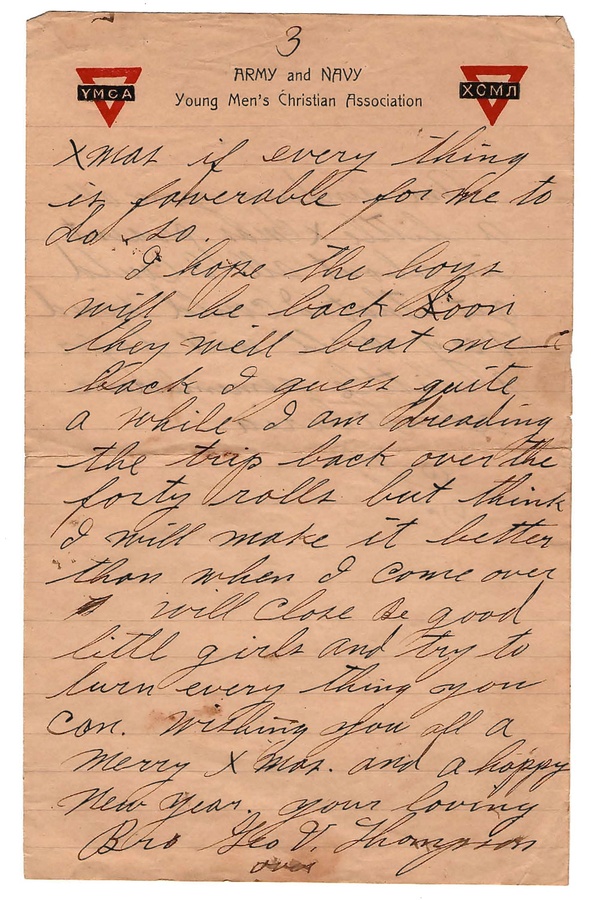 3
ARMY and NAVY
Young Men's Christian Association
YMCA
ХСМЛ
Xmas if every thing
is faverable for me to
do so.
I hope the boys
will be back soon
they will beat me
back I guess quite
a while I am dreading
the trip back over the
forty rolls but think
I will make it better
than when I come over
I will close be good
littl girls and try to
lurn every thing you
can. Wishing you all a
merry Xmas. and a happy
New Year. your loving
Bro Geo V. Thompson
over